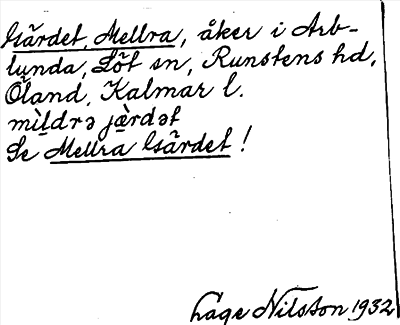 Gärdet, Mellra, åker i Arb-
lunda, Löt sn, Runstens hd,
Öland, Kalmar l.
mìldrə jæ̀rdət
Se Mellra Gärdet!
Lage Nilsson 1932